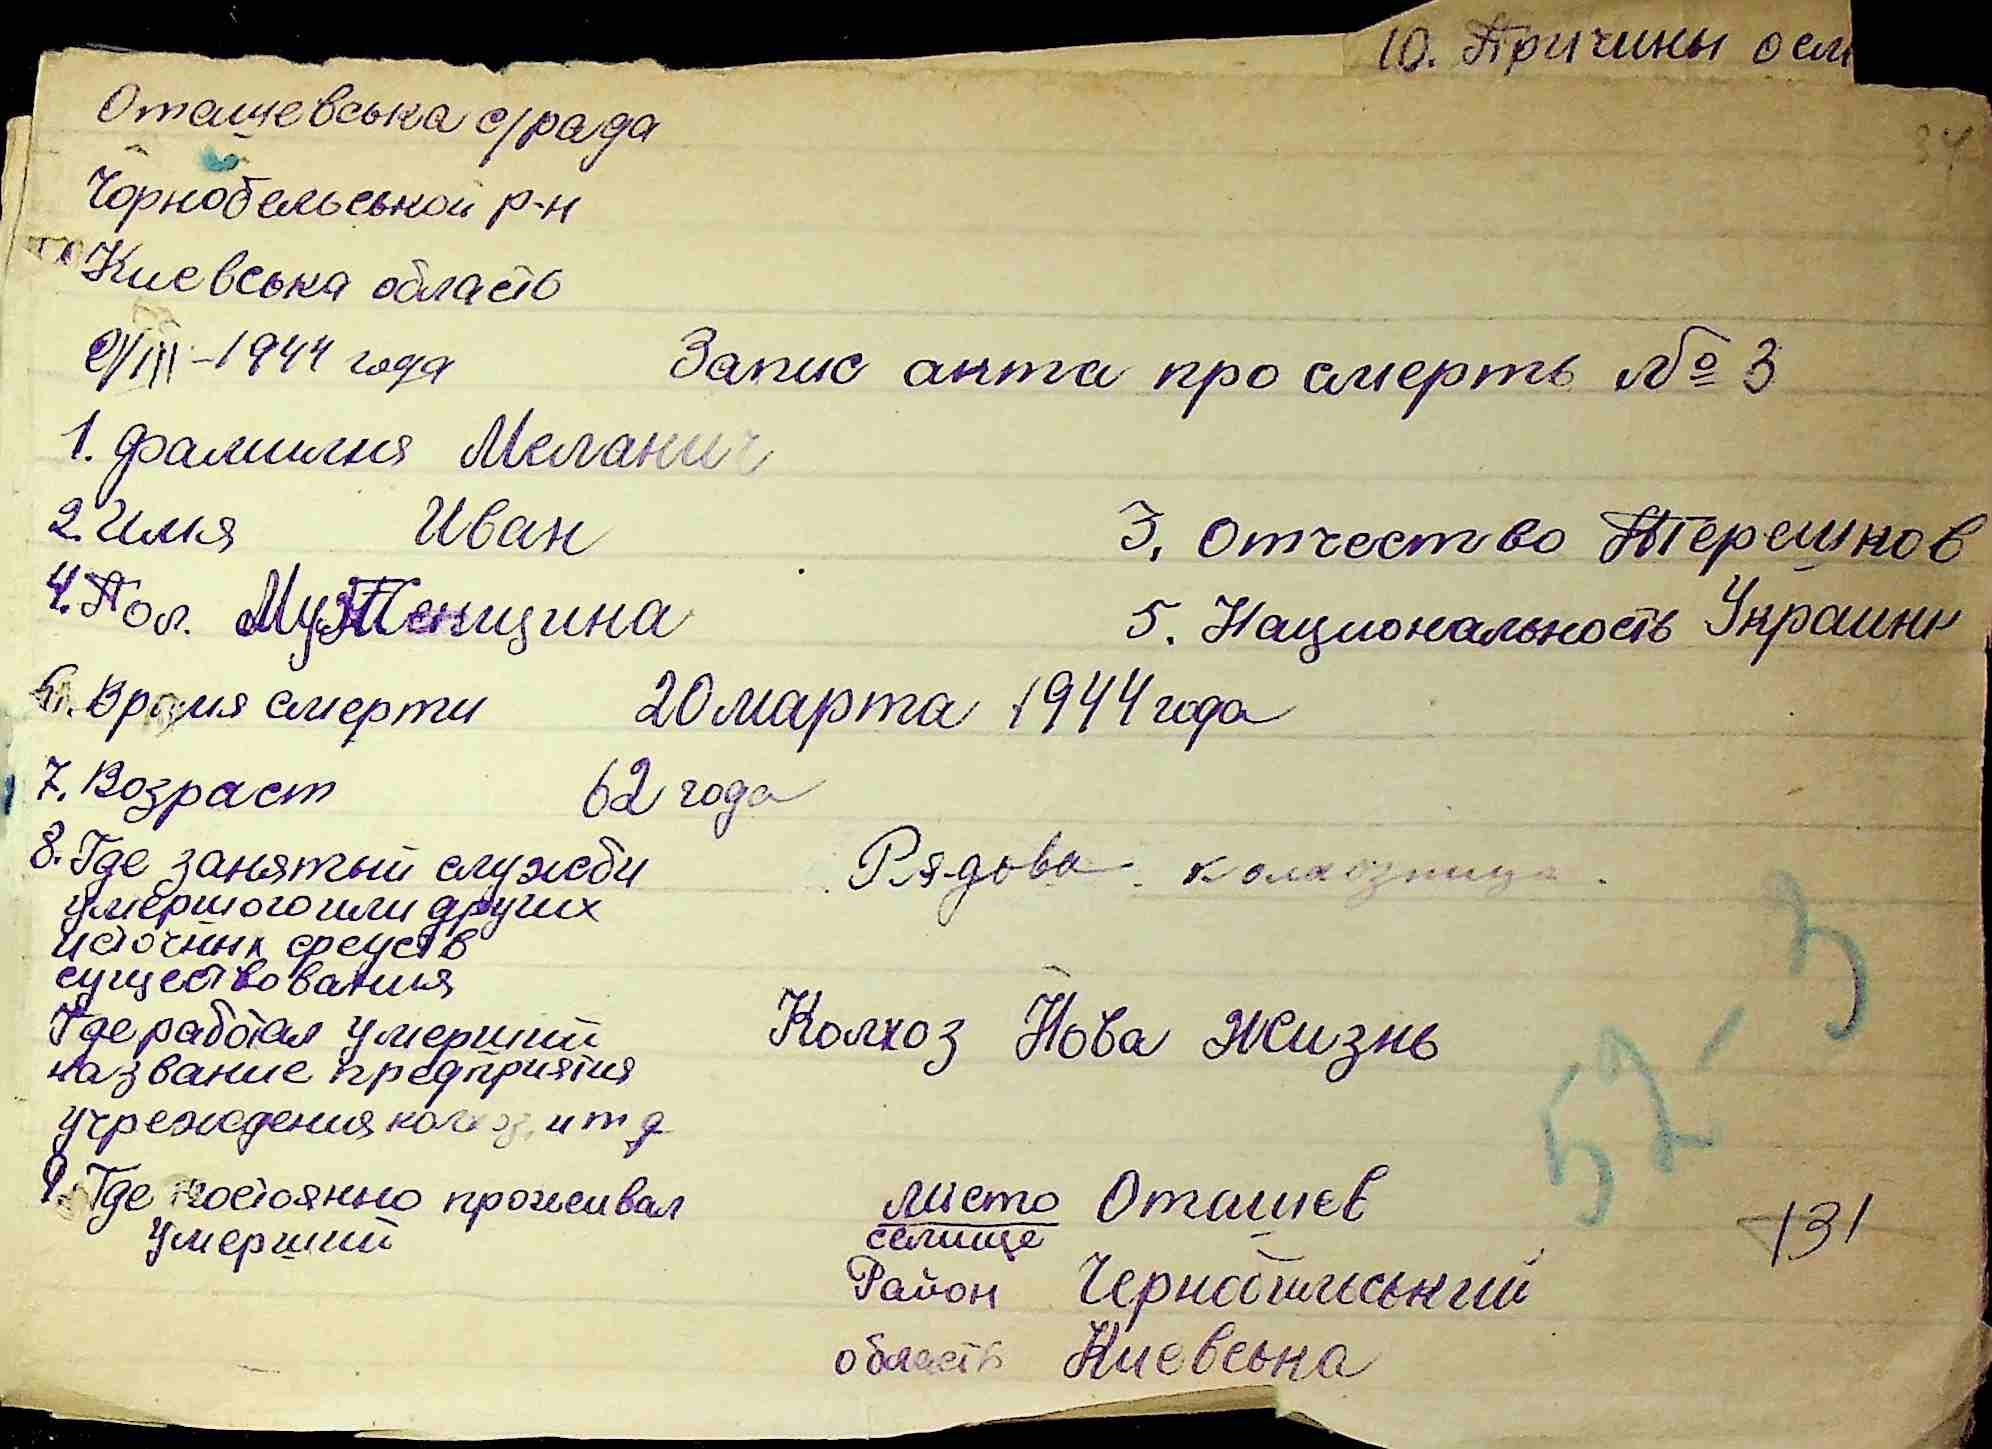 10. Причины осм
Оташевська с/рада
Чорнобельськой р-н
Киевська область
2/III-1944 года Запис акта про смерть № 3
1. фамилия Меланич
2. Имя Иван 3. Отчество Терешков
4. Пол. Муженщина 5. Национальность Украин
6. Время смерти 20 марта 1944 года
7. Возраст 62 года
8. Где занятый службы Рядова колхозница.
умершого или других
источник средств
существования
Где работал умерший Колхоз Нова жизнь
название предприятия
учреждения колхоз, и т д
9. Где постоянно проживал місто Оташев
умерший селище
Район Чернобильський
область Киевська
52-3
131
34